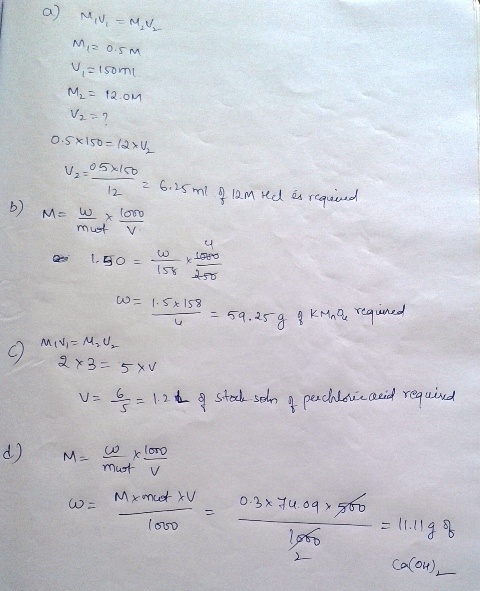 a) M₁V₁ = M₂V₂
M₁ = 0.5 M
V₁ = 150ml
M₂ = 12.0M
V₂ = ?
0.5 × 150 = 12 × V₂
V₂ = 05×150 / 12 = 6.25 ml of 12M Hcl is required
b) M = w/mwt × 1000/V
1.50 = w/158 × 1000/250 4
w = 1.5 × 158 / 4 = 59.25 g of KMnO₄ required
c) M₁V₁ = M₂V₂
2 × 3 = 5 × V
V = 6/5 = 1.2 L of stock soln of perchloric acid required
d) M = w/mwt × 1000/V
w = M × mwt × V / 1000 = 0.3 × 74.09 × 500 / 1000 2 = 11.11 g of
Ca(OH)₂